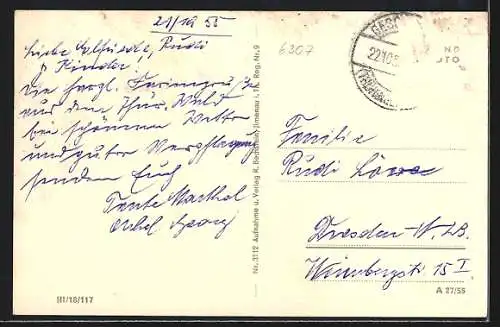 21/10 55
Liebe Elfriede, Rudi
u Kinder!
Die herzl. Feriengrüße
aus dem Thür. Wald
bei schönem Wetter
und guter Verpflegung
senden Euch
Tante Marthel
Onkel Georg
6307
22.10.5
Familie
Rudi Löwe
Dresden-N.
15 I
Nr. 3112 Aufnahme u. Verlag R. Ilmenau i. Th. Reg. Nr. 9
III/18/117
A 27/55